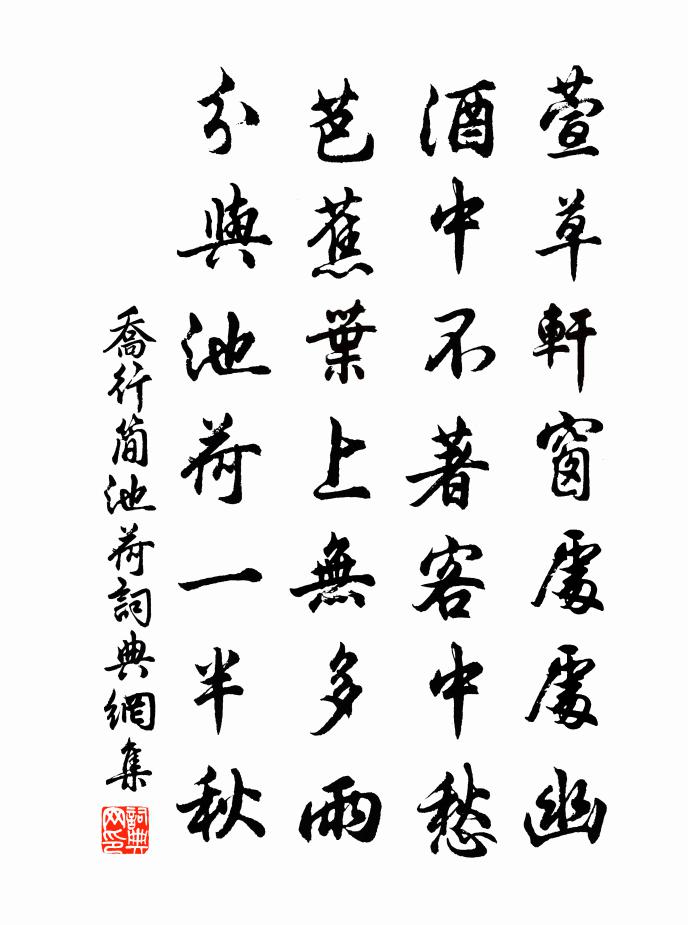 萱草軒窗處處幽
酒中不著客中愁
芭蕉葉上無多雨
分與池荷一半秋
喬行簡池荷詞典網集
詞典
网印